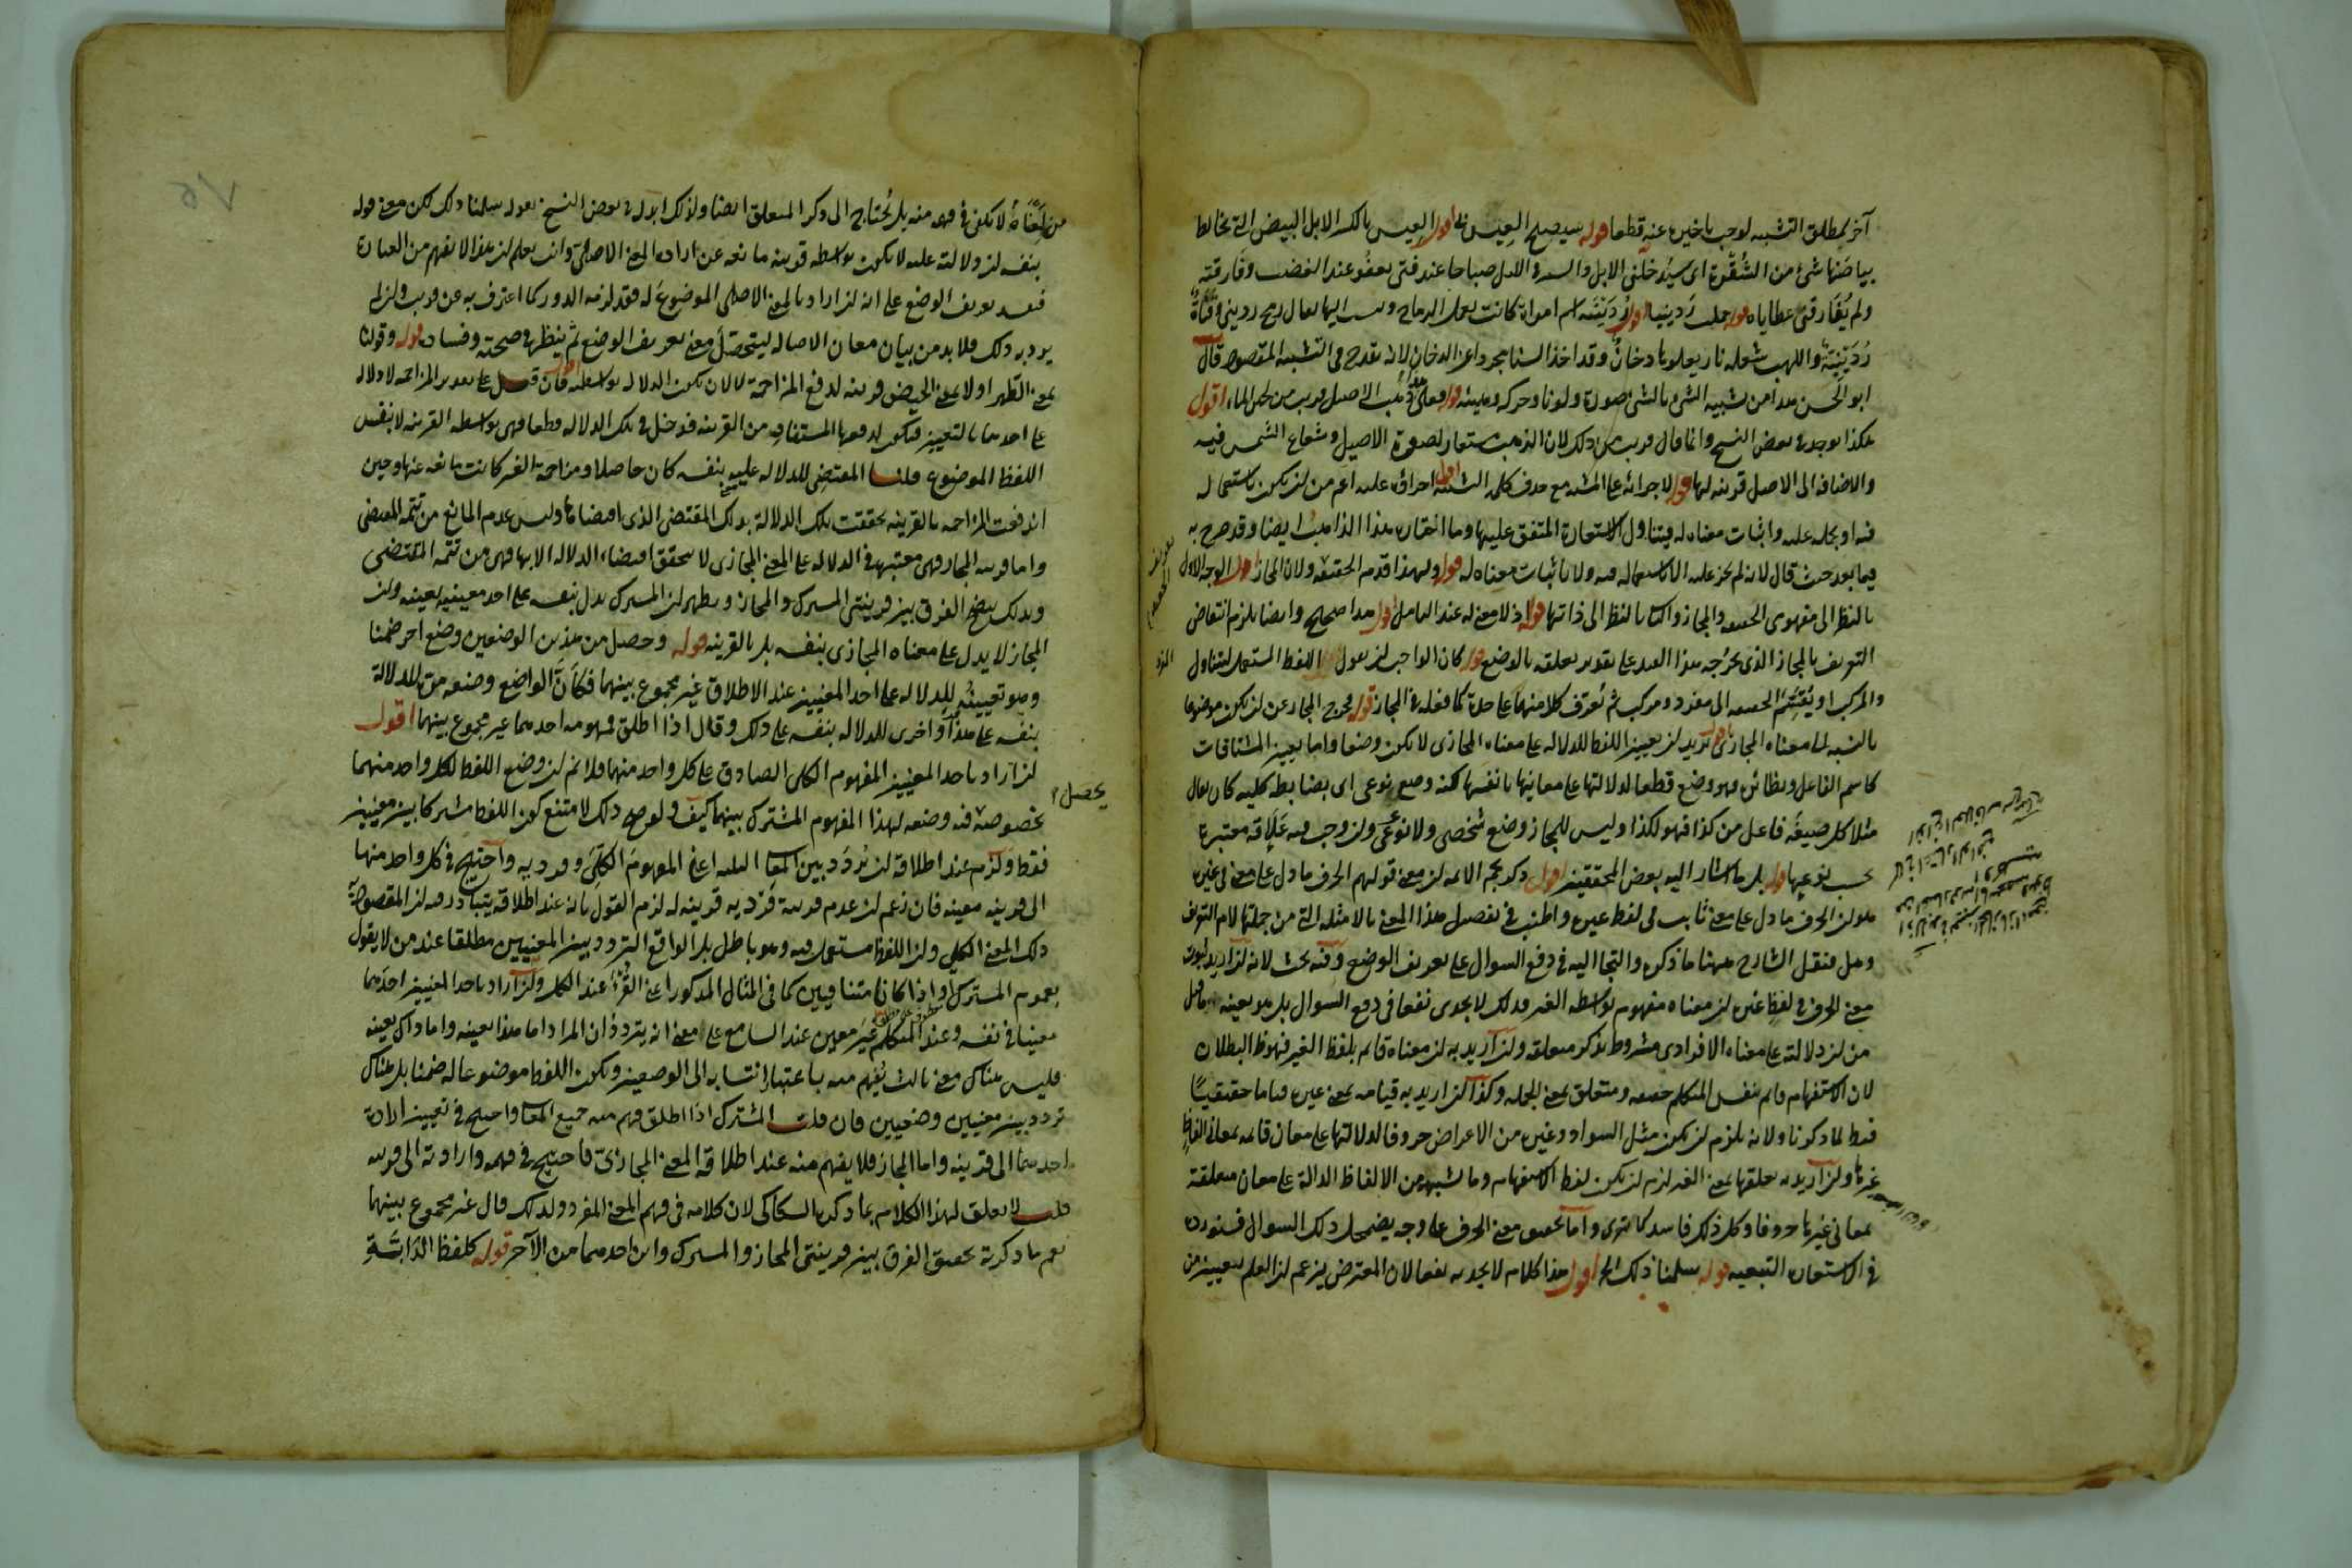 آخر بمطلق التشبيه لوجب تأخيره عنه قطعا قوله سيصبح العيس اقول العيس بالكسر الابل البيض التى يخالط
بياضها شئ من الشقرة اى سيدخلنى الابل والسير فى الليل صباحا عند فتى يعفو عند الغضب وفارقته
ولم يفارقنى عطاياه قوله حملت ردينيا اقول ردينة اسم امرأة كانت تعمل الرماح وينسب اليها يقال رمح ردينى وقناة
ردينية واللهب شعلة نار يعلوها دخان وقد اخذ السنا مجردا عن الدخان لانه يقدح فى التشبيه المقصود قال
ابو الحسن هذا من تشبيه الشئ بالشئ صورة ولونا وحركة وهيئة قوله وعلى ذهب الاصيل قريب من لجين الماء اقول
هكذا يوجد فى بعض النسخ وانما قال قريب من ذلك لان الذهب مستعار لصورة الاصيل وشعاع الشمس فيه
والاضافة الى الاصيل قرينة لها قوله لاجرائه على المشبه مع حذف كلمة التشبيه اقول اجراؤه عليه اعم من ان يكون باستعماله
فيه او بحمله عليه واثبات معناه له فيتناول الاستعارة المتفق عليها وما اختاره هذا الذاهب ايضا وقد صرح به
فيما بعد حيث قال لانه لم يجر عليه لا باستعماله فيه ولا باثبات معناه له قوله ولهذا قدم الحقيقة ولان المجاز اقول الوجه الاول
بالنظر الى مفهومى الحقيقة والمجاز والثانى بالنظر الى ذاتها قوله اذ لا معنى له عند التأمل اقول هذا صحيح وايضا يلزم انتقاض
التعريف بالمجاز الذى يخرجه هذا القيد على تقدير تعلقه بالوضع قوله كان الواجب ان يقول اللفظ المستعمل ليتناول
والمركب او يقسم الحقيقة الى مفرد ومركب ثم يعرف كلا منهما على حدة كما فعله فى المجاز قوله فخرج المجاز عن ان يكون موضوعا
بالنسبة الى معناه المجازى اقول يريد ان تعيين اللفظ للدلالة على معناه المجازى لا يكون وضعا واما تعيين المشتقات
كاسم الفاعل ونظائره فهو وضع قطعا لدلالتها على معانيها بانفسها لكنه وضع نوعى اى بضابطة كلية كان يقال
مثلا كل صيغة فاعل من كذا فهو لكذا وليس للمجاز وضع شخصى ولا نوعى وان وجب فيه علاقة معتبرة
بحسب نوعها قوله بل ما اشار اليه بعض المحققين اقول ذكر نجم الائمة ان معنى قولهم الحرف ما دل على معنى فى غيره
هو ان الحرف ما دل على معنى ثابت فى لفظ غيره واطنب فى تفصيل هذا المعنى بالامثلة التى من جملتها لام التعريف
وهل فنقل الشارح ههنا ما ذكره والتجأ اليه فى دفع السوال على تعريف الوضع وفيه بحث لانه ان اريد بثبوت
معنى الحرف فى لفظ غيره ان معناه مفهوم بواسطة الغير فذلك لا يجدى نفعا فى دفع السوال بل هو بعينه ما قيل
من ان دلالته على معناه الافرادى مشروط بذكر متعلقه وان اريد به ان معناه قائم بلفظ الغير فهو ظاهر البطلان
لان الاستفهام قائم بنفس المتكلم حقيقة ومتعلق بمعنى الجملة وكذا ان اريد به قيامه بمعنى غيره قياما حقيقيا
فبطل لما ذكرنا ولانه يلزم ان يكون مثل السواد وغيره من الاعراض حروفا لدلالتها على معان قائمة بمعانى الفاظ
غيرها وان اريد به تعلقها بمعنى الغير لزم ان يكون لفظ الاستفهام وما يشبهه من الالفاظ الدالة على معان متعلقة
بمعانى غيرها حروفا وكل ذلك فاسد كما ترى واما تحقيق معنى الحرف على وجه يضمحل ذلك السوال فسنورده
فى الاستعارة التبعية قوله سلمنا ذلك الخ اقول هذا كلام لا يجديه نفعا لان المعترض يزعم ان العلم بتعيين من
من لمعناه لا تكفى فى فهمه منه بل يحتاج الى ذكر المتعلق ايضا ولذلك ابدل فى بعض النسخ بقوله سلمنا ذلك لكن معنى قوله
بنفسه ان دلالته عليه لا تكون بواسطة قرينة مانعة عن ارادة المعنى الاصلى وانت تعلم ان هذا لا يفهم من العبارة
فيفسد تعريف الوضع على انه ان اراد بالمعنى الاصلى الموضوع له فقد لزمه الدور كما اعترف به عن قريب وان لم
يرد به ذلك فلا بد من بيان معنى الاصالة ليتحصل معنى تعريف الوضع ثم ينظر فى صحته وفساده قوله وقولنا
بمعنى الطهر او لا بمعنى الحيض قرينة لدفع المزاحمة لا لان تكون الدلالة بواسطته اقول فان قيل على تقدير المزاحمة لا دلالة
على احدهما بالتعيين فيكون لدفعها المستفاد من القرينة مدخل فى تلك الدلالة قطعا فهى بواسطة القرينة لا بنفس
اللفظ الموضوع قلنا المقتضى للدلالة عليه بنفسه كان حاصلا ومزاحمة الغير كانت مانعة عنها وحين
اندفعت المزاحمة بالقرينة تحققت تلك الدلالة بذلك المقتضى الذى اقتضاها وليس عدم المانع من تتمة المقتضى
واما قرينة المجاز فهى معتبرة فى الدلالة على المعنى المجازى لا يتحقق اقتضاء الدلالة الا بها فهى من تتمة المقتضى
وبذلك يتضح الفرق بين قرينتى المشترك والمجاز ويظهر ان المشترك يدل بنفسه على احد معنييه بعينه وان
المجاز لا يدل على معناه المجازى بنفسه بل بالقرينة قوله وحصل من هذين الوضعين وضع آخر ضمنا
وهو تعيينه للدلالة على احد المعنيين عند الاطلاق غير مجموع بينهما فكأن الواضع وضعه مرة للدلالة
بنفسه على هذا واخرى للدلالة بنفسه على ذلك وقال اذا اطلق فمفهومه احدهما غير مجموع بينهما اقول
ان اراد باحد المعنيين المفهوم الكلى الصادق على كل واحد منهما فلا نم ان وضع اللفظ لكل واحد منهما
يحصل
بخصوصه فيه وضعه لهذا المفهوم المشترك بينهما كيف ولو صح ذلك لامتنع كون اللفظ مشتركا بين معنيين
فقط ولزم عند اطلاقه ان يتردد بين المعانى الثلثة اعنى المفهوم الكلى وفرديه واحتيج فى كل واحد منها
الى قرينة معينة فان زعم ان عدم قرينة فرديه قرينة له لزم القول بانه عند اطلاقه يتبادر منه ان المقصود به
ذلك المعنى الكلى وان اللفظ مستعمل فيه وهو باطل بل الواقع التردد بين المعنيين مطلقا عند من لا يقول
بعموم المشترك او اذا كانا متنافيين كما فى المثال المذكور اعنى القرء عند الكل وان اراد باحد المعنيين احدهما
معينا فى نفسه وعند المتكلم غير معين عند السامع على معنى انه يتردد ان المراد اما هذا بعينه واما ذاك بعينه
فليس هناك معنى ثالث يفهم منه باعتبار انتسابه الى الوضعين ويكون اللفظ موضوعا له ضمنا بل هناك
تردد بين معنيين وضعيين فان قلت المشترك اذا اطلق فهم منه جميع المعانى واحتيج فى تعيين ارادة
احدهما الى قرينة واما المجاز فلا يفهم منه عند اطلاقه المعنى المجازى فاحتيج فى فهمه وارادته الى قرينة
قلت لا تعلق لهذا الكلام بما ذكره السكاكى لان كلامه فى فهم المعنى المفرد ولذلك قال غير مجموع بينهما
نعم ما ذكرته تحقيق الفرق بين قرينتى المجاز والمشترك واين احدهما من الآخر قوله كلفظ الدابة